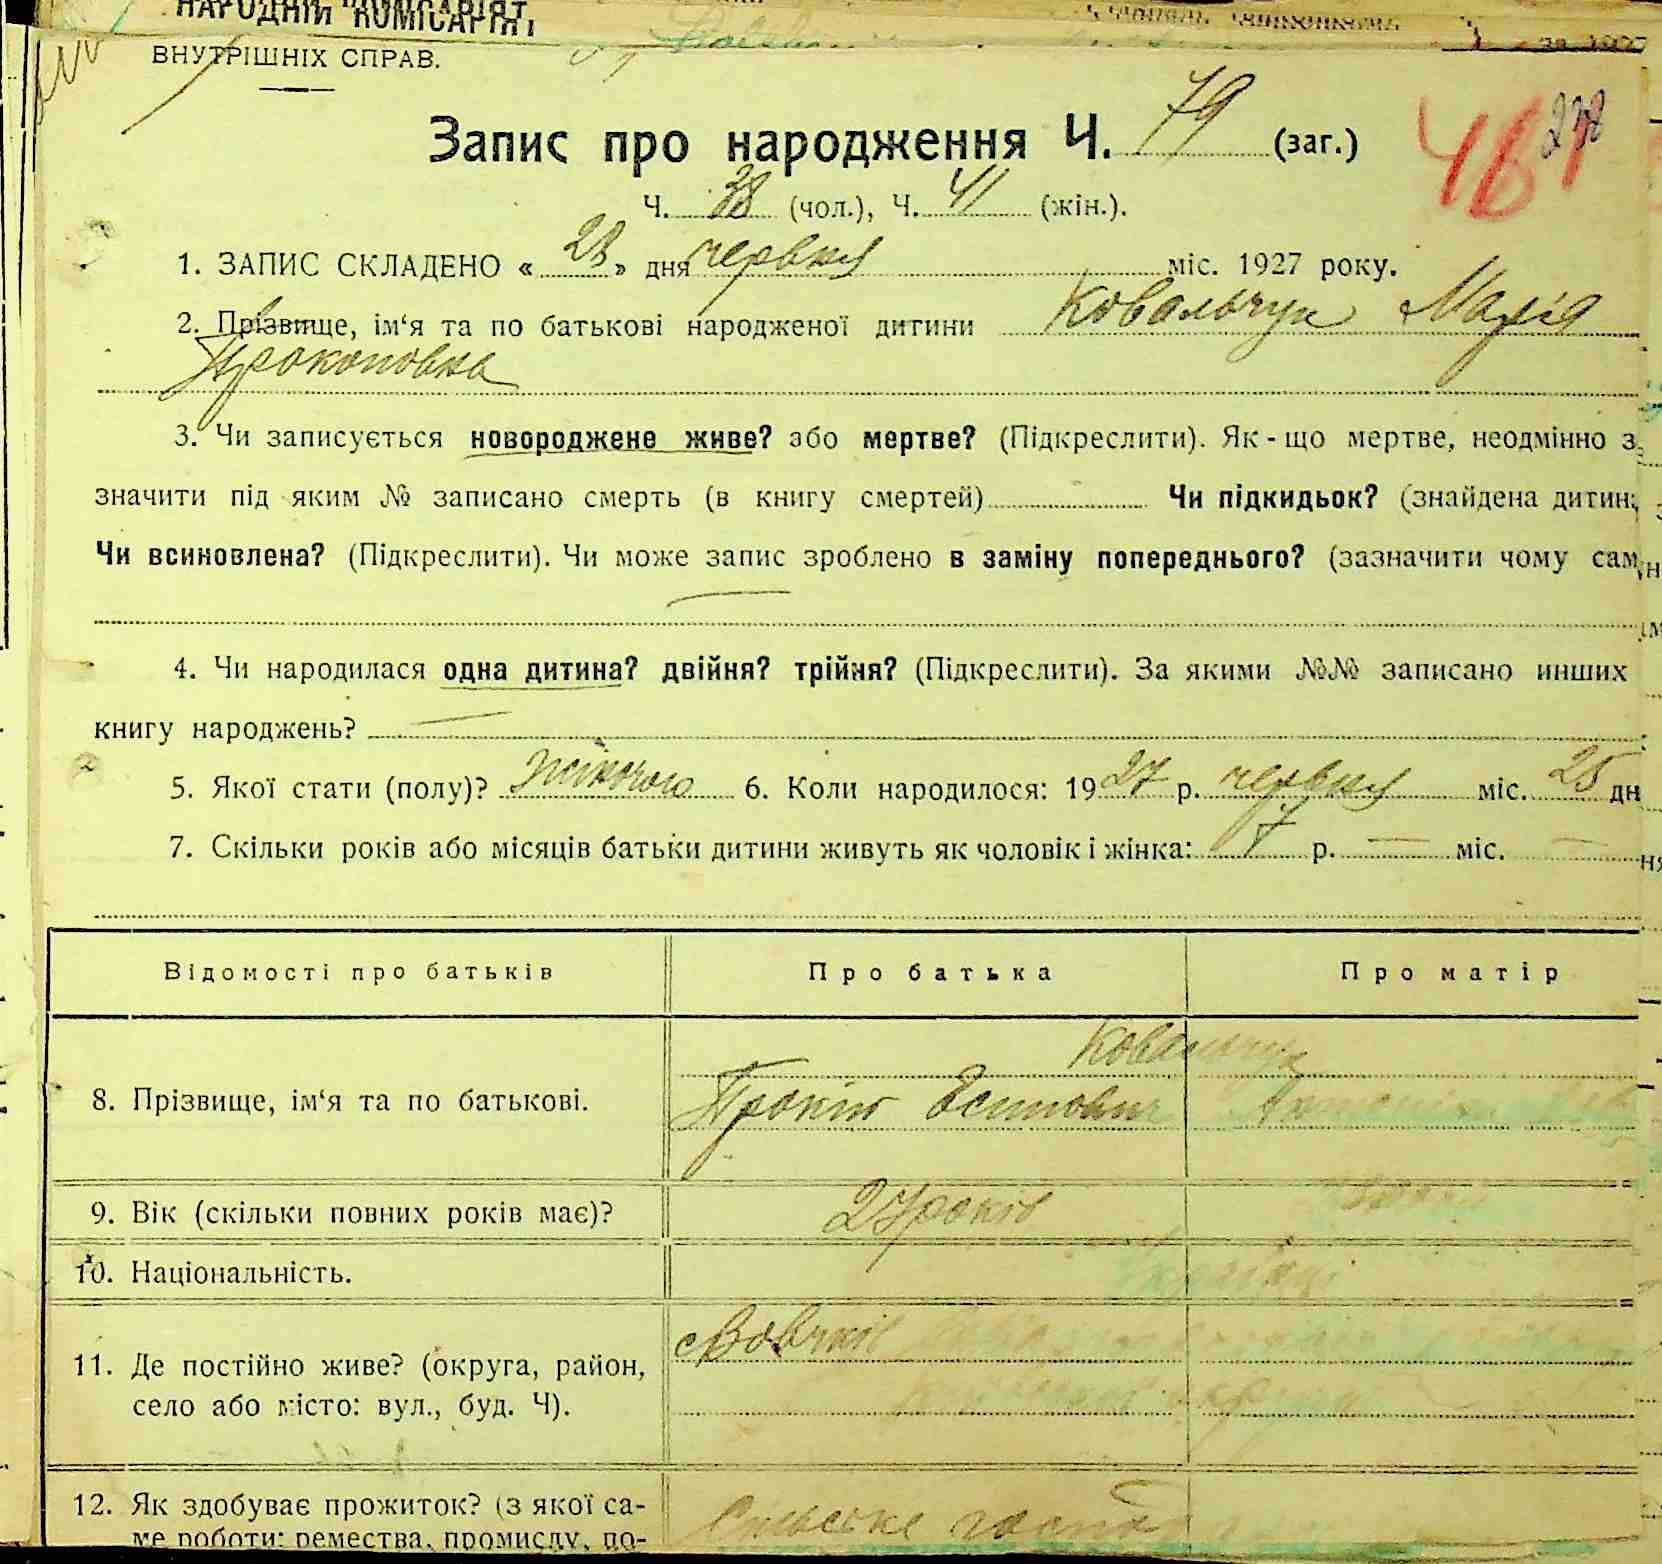 НАРОДНІЙ КОМІСАРІЯТ
ВНУТРІШНІХ СПРАВ.
Запис про народження Ч. 79 (заг.)
238
Ч. 38 (чол.), Ч. 41 (жін.).
1. ЗАПИС СКЛАДЕНО « 28 » дня червня міс. 1927 року.
2. Прізвище, ім‘я та по батькові народженої дитини Ковальчук Марія
Прокоповна
3. Чи записується новороджене живе? або мертве? (Підкреслити). Як-що мертве, неодмінно з
значити під яким № записано смерть (в книгу смертей) Чи підкидьок? (знайдена дитин
Чи всиновлена? (Підкреслити). Чи може запис зроблено в заміну попереднього? (зазначити чому сам
4. Чи народилася одна дитина? двійня? трійня? (Підкреслити). За якими №№ записано инших
книгу народжень? —
5. Якої стати (полу)? Жіночого 6. Коли народилося: 1927 р. червня міс. 25 дн
7. Скільки років або місяців батьки дитини живуть як чоловік і жінка: 7 р. — міс. —
Відомості про батьків Про батька Про матір
Ковальчук
8. Прізвище, ім‘я та по батькові. Прокіп Есипович
9. Вік (скільки повних років має)? 27 років
10. Національність.
11. Де постійно живе? (округа, район, с Вовчків
село або місто: вул., буд. Ч).
12. Як здобуває прожиток? (з якої са- Сільське
ме роботи: ремества, промислу, по-